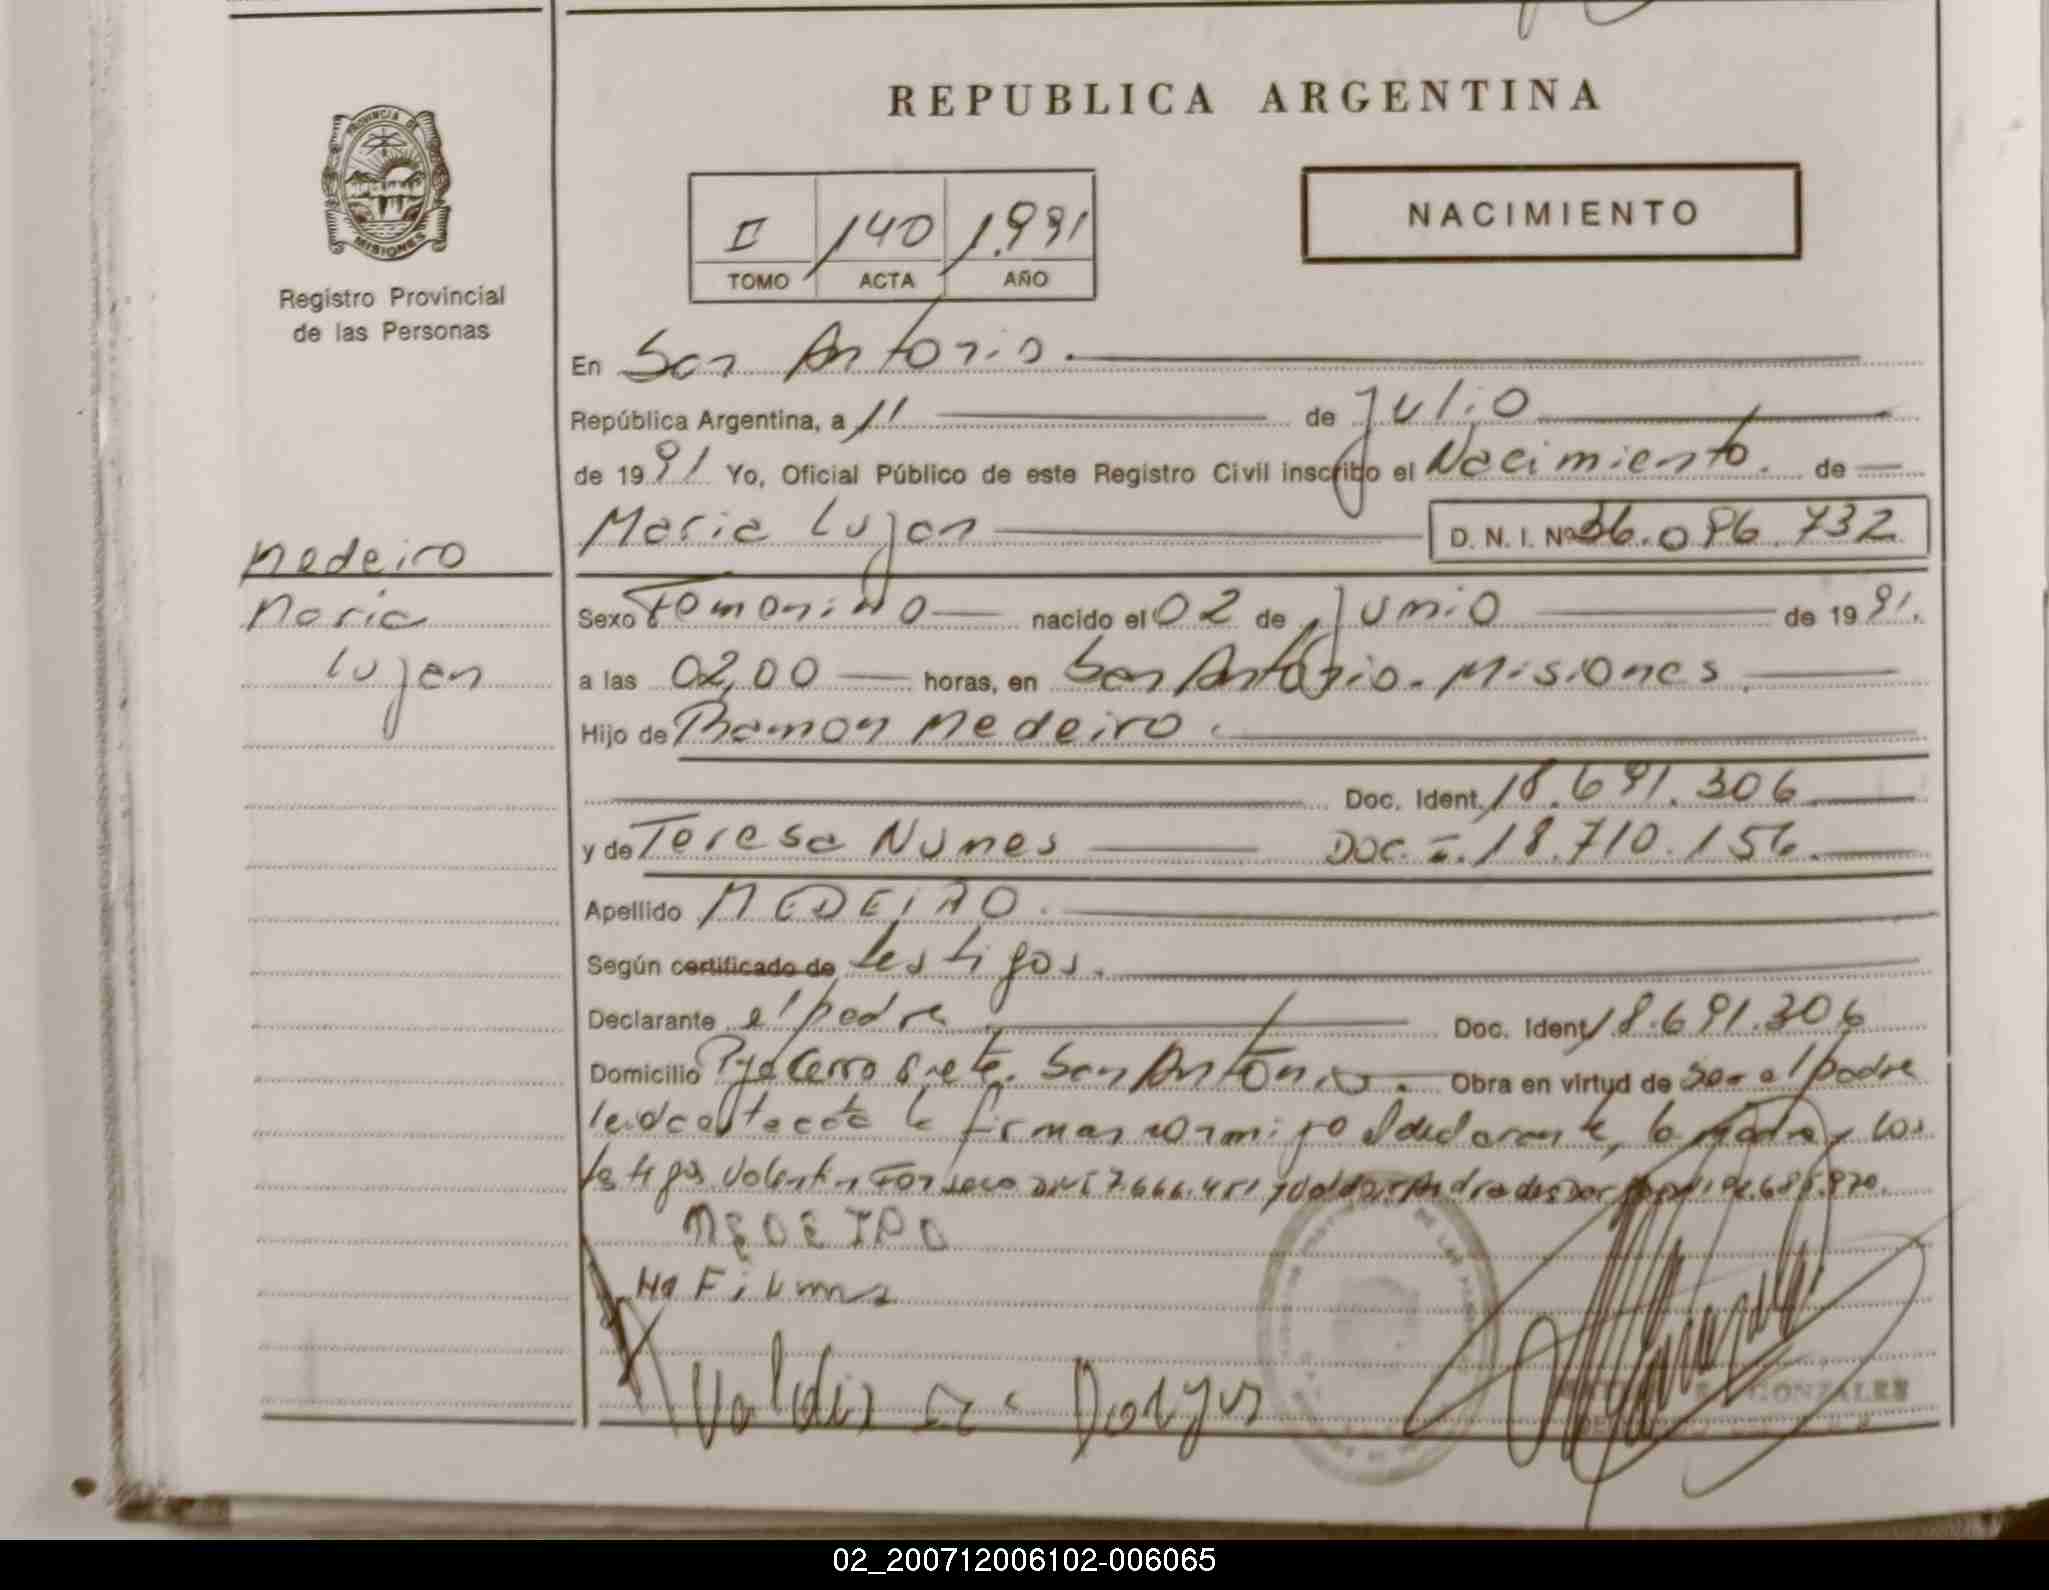 REPUBLICA ARGENTINA
PROVINCIA DE
MISIONES
Registro Provincial
de las Personas
II 140 1.991
TOMO ACTA AÑO
NACIMIENTO
En San Antonio.
República Argentina, a 11 de Julio
de 1991 Yo, Oficial Público de este Registro Civil inscribo el Nacimiento. de
Maria Lujan D. N. I. Nº 36.096.732
Medeiro
Maria
Lujan
Sexo Femenino nacido el 02 de Junio de 1991.
a las 02,00 horas, en San Antonio. Misiones.
Hijo de Ramon Medeiro.
Doc. Ident. 18.691.306
y de Teresa Nunes Doc. I. 18.710.156.
Apellido MEDEIRO.
Según certificado de testigos.
Declarante el padre Doc. Ident. 18.691.306
Domicilio Pje Cerro Siete. San Antonio. Obra en virtud de ser el padre
leida el acta la firman conmigo el declarante, la madre y los
testigos Valentin DNI 7.666.451 y
MEDEIRO
No Firma
GONZALES
02_200712006102-006065